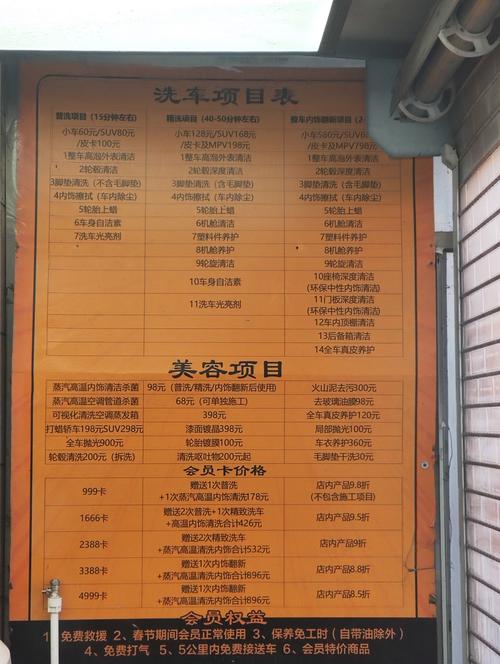 洗车项目表
普洗项目（15分钟左右） 精洗项目（40-50分钟左右） 整车内饰翻新项目（2-
小车60元/SUV80 小车128元/SUV168 小车580元/SUV6
/皮卡100元 /皮卡及MPV198元 /皮卡及MPV798元
1整车高泡外表清洁 1整车高泡外表清洁 1整车高泡外表清洁
2轮毂清洁 2轮毂深度清洁 2轮毂深度清洁
3脚垫清洗（不含毛脚垫） 3脚垫清洗（含毛脚垫） 3脚垫清洗（含毛脚垫）
4内饰擦拭（车内除尘） 4内饰擦拭（车内除尘） 4内饰擦拭（车内除尘）
5轮胎上蜡 5轮胎上蜡 5轮胎上蜡
6车身自洁素 6机舱清洁 6机舱清洁
7洗车光亮剂 7塑料件养护 7塑料件养护
8机舱养护 8机舱养护
9轮旋清洁 9轮旋清洁
10车身自洁素 10座椅深度清洁
(环保中性内饰清洁)
11洗车光亮剂 11门板深度清洁
(环保中性内饰清洁)
12车内顶棚清洁
13后备箱清洁
14全车真皮养护
美容项目
蒸汽高温内饰清洁杀菌 98元（普洗/精洗/内饰翻新后使用） 火山泥去污300元
蒸汽高温空调管道杀菌 68元（可单独施工） 去玻璃油膜98元
可视化清洗空调蒸发箱 398元 全车真皮养护120元
打蜡轿车198元SUV298元 漆面镀晶398元 局部抛光100元
全车抛光900元 轮胎镀膜100元 车衣养护360元
轮毂清洗200元（拆洗） 清洗呕吐物200元起 毛脚垫干洗30元
会员卡价格
999卡 赠送1次普洗 店内产品9.8折
+1次蒸汽高温内饰清洗178元 (不包含施工项目)
1666卡 赠送2次普洗+1次精致洗车 店内产品9.5折
+高温内饰清洗合计426元
2388卡 赠送2次精致洗车 店内产品9折
+蒸汽高温清洗内饰合计532元
3388卡 赠送1次内饰翻新 店内产品8.8折
+蒸汽高温清洗内饰合计696元
4999卡 赠送1次内饰翻新 店内产品8.5折
+蒸汽高温清洗内饰合计696元
会员权益
1、免费救援 2、春节期间会员正常使用 3、保养免工时（自带油除外）
4、免费打气 5、5公里内免费接送车 6、会员特价商品